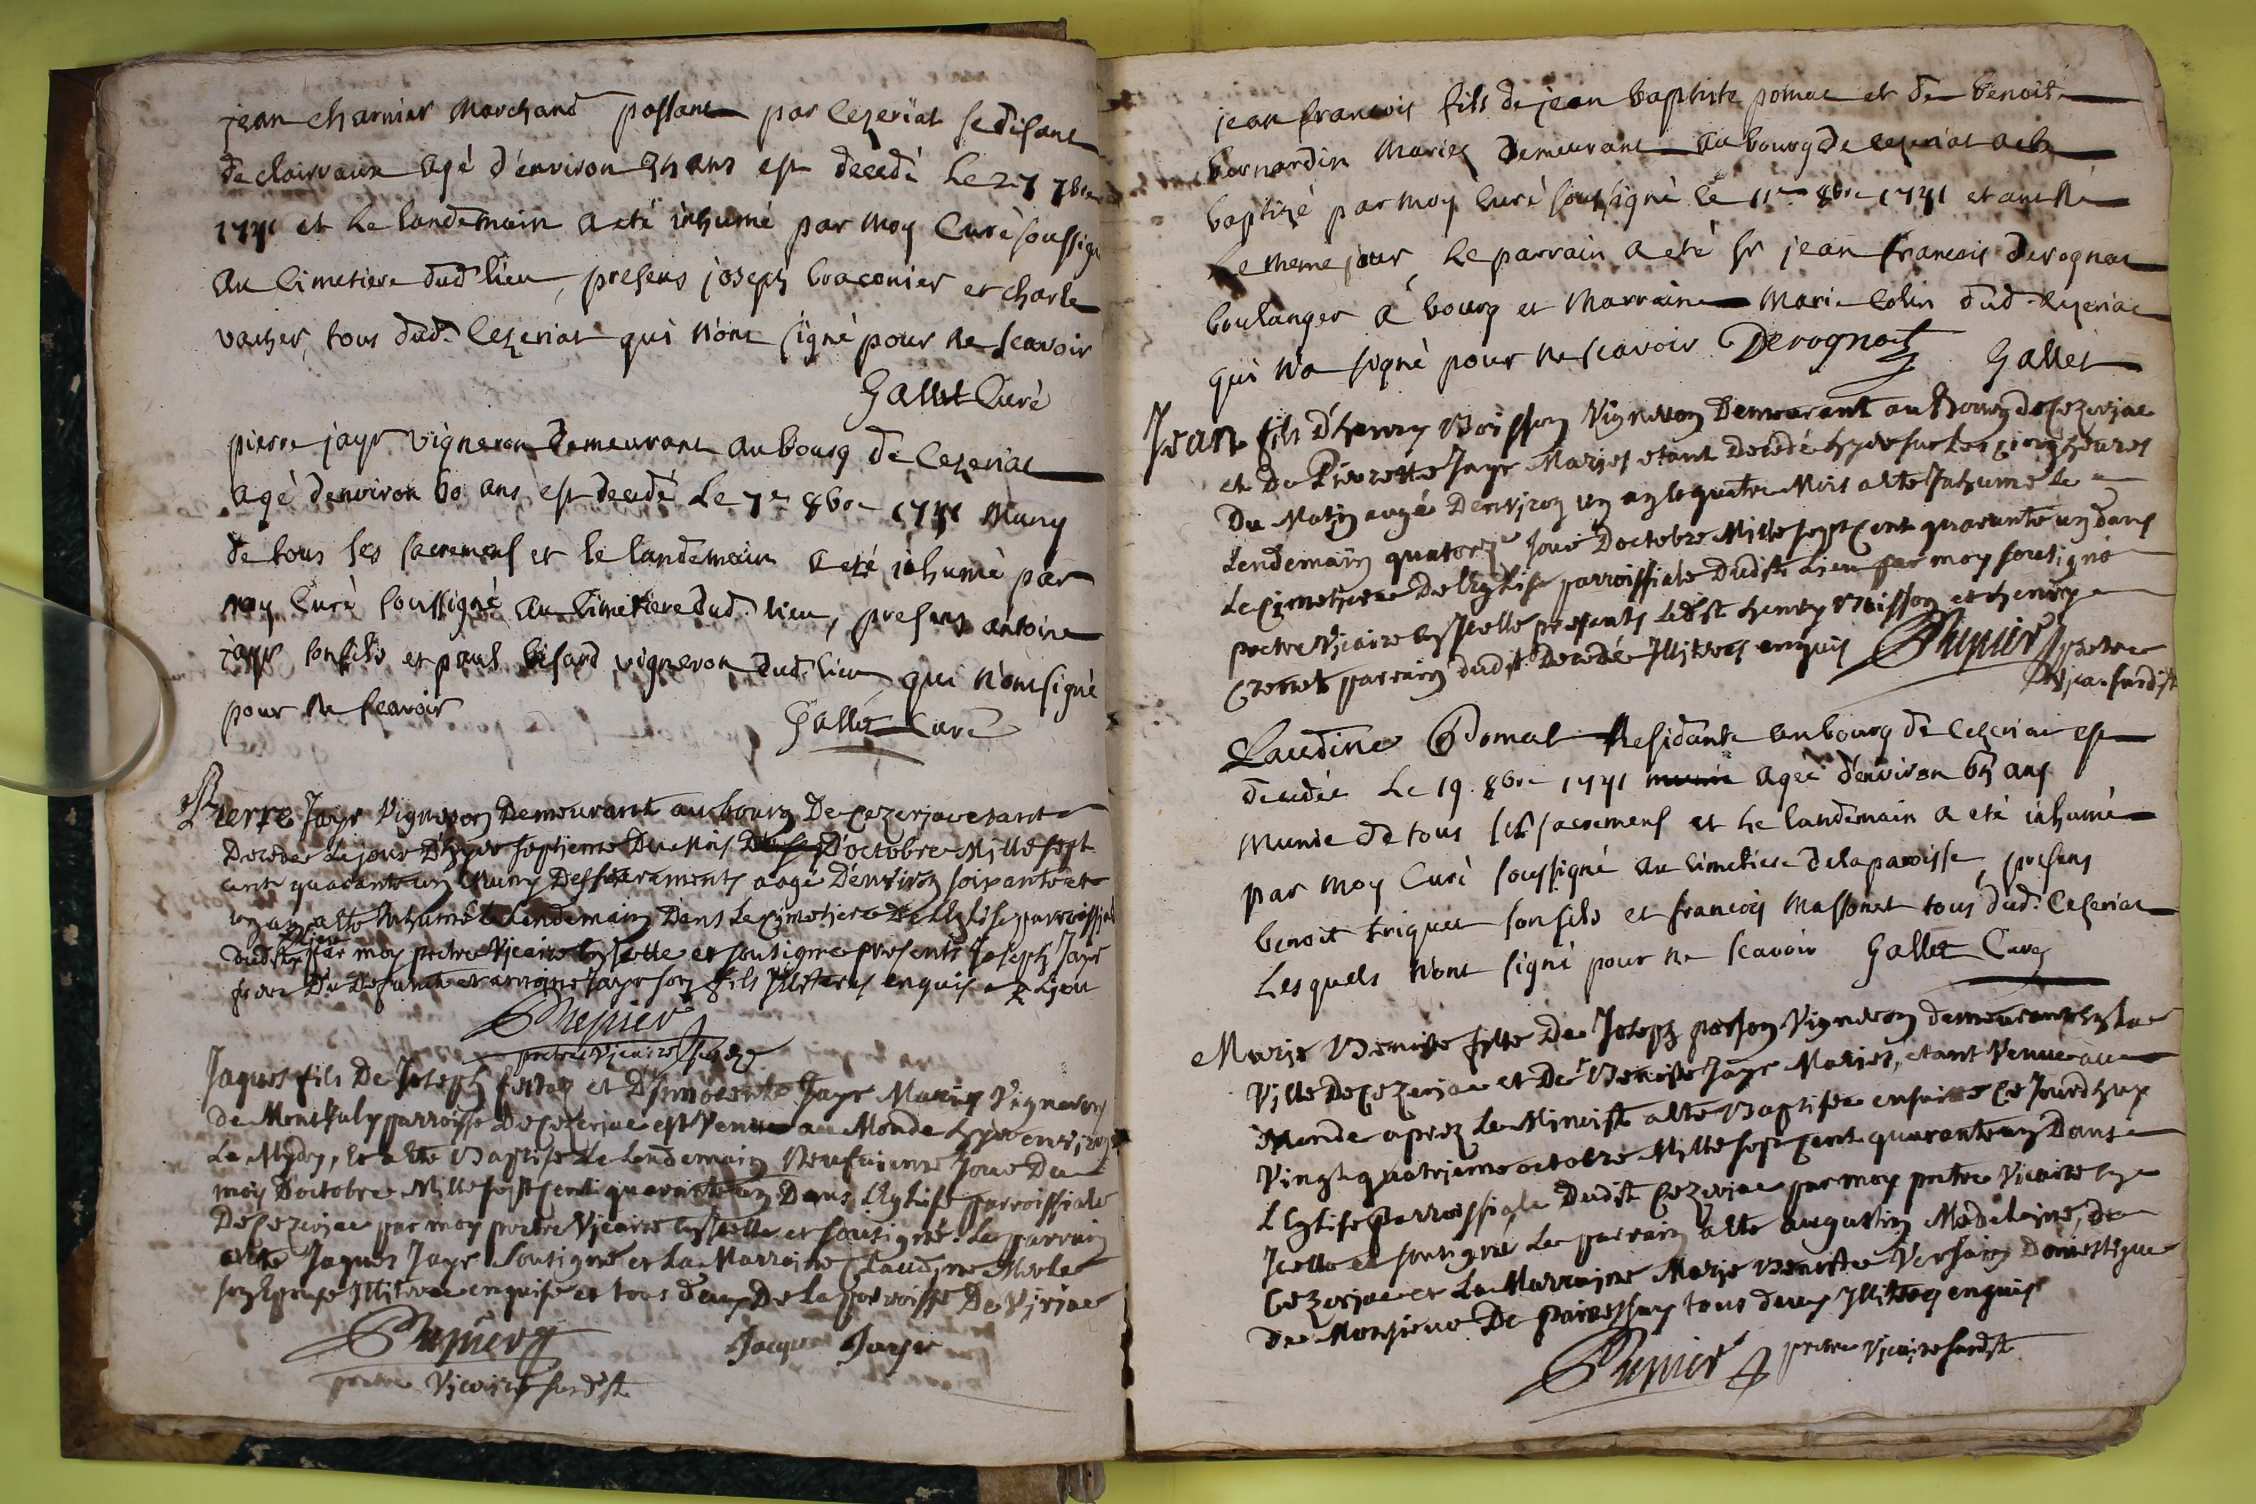 jean charnier marchand passant par cezeriat se disant
de clairvaux agé d'environ ans est decedé le 27 7bre
1741 et le landemain a eté inhumé par moy curé soussigné
au cimetiere dud lieu, presens joseph braconier et charle
vacher, tous dud. cezeriat qui n'ont signé pour ne scavoir
Gallet curé
pierre jayr vigneron demeurant au bourg de cezeriat
agé d'environ 60 ans est decedé le 7e 8bre 1741 muny
de tous ses sacremens et le landemain a eté inhumé par
moy curé soussigné au cimetiere dud. lieu, presens antoine
jayr son fils et paul vigneron dud. lieu qui n'ont signé
pour ne scavoir
Gallet curé
Pierre Jayr Vigneron Demeurant au bourg De Cezerjac etant
Decedez le jour D'hyer septieme Du Mois D'octobre Mille sept
cent quarante un Muny Des sacrements aagé D'environ soixante et
un an a esté Inhumé le Lendemain Dans le cimetiere De l'Eglise parroissiale
dudit par moy pretre Vicaire en icelle et soutigné presents Joseph Jayr
frere Du Defunct et antoine Jayr son fils Illiteres enquis
Prepier
pretre Vicaire
Jaques fils De Joseph et D'Innocente Jayr Mariez Vignerons
de Montjuly parroisse De Cezerjac est Venu au Monde hyer environ
Le Mydy, et a esté Baptisé Le Lendemain Neufvieme Jour Du
mois D'octobre Mille sept cent quarante un Dans l'Eglise parroissiale
De Cezerjac par moy pretre Vicaire en icelle et soutigné. Le parrain
a esté Jaques Jayr soutigné et La Marraine Claudine
son Epouse Illiteree enquise et tous deux De La parroisse De
Prepier Jacque Jayr
pretre Vicaire susdit
jean francois fils de jean baptiste pomat et de benoite
bernardin mariez demeurant au bourg de cezeriat a eté
baptizé par moy curé soussigné le 11e 8bre 1741 et
le meme jour, le parrain a eté sr jean francois derognat
boulanger a bourg et marraine marie colin dud. cezeriat
qui n'a signé pour ne scavoir Derognat Gallet
Jean fils D'henry Boisson Vigneron Demeurant au Bourg de Cezerjac
et De Pierrette Jayr Mariez etant Decedé hyer sur Les cinq heures
Du Matin aagé D'environ un an et quatre Mois a esté Inhumé le
Lendemain quatorze Jour D'octobre Mille sept cent quarante un dans
Le Cimetiere De l'Eglise parroissiale Dudit Lieu par moy soutigné
pretre Vicaire en Icelle presents Ledit henry Boisson et henry
parrain dudit Decedé Illiteres enquis Prepier pretre
Vicaire susdit
Claudine Pomat Residante au bourg de cezeriat est
decedée le 19. 8bre 1741 agée d'environ 65 ans
munie de tous ses sacremens et le landemain a eté inhumé
par moy curé soussigné au cimetiere de la paroisse, presens
benoit triquet son fils et francois massonet tous dud. cezeriat
Lesquels n'ont signé pour ne scavoir Gallet Curé
Marie Benoite fille De Joseph Vigneron demeurant
Ville De Cezerjac et De Benoite Jayr Mariez, etant Venue au
Monde aprez Le Minuist a esté Baptisée ensuitte Ce Jourd'huy
Vingt quatrieme octobre Mille sept cent quarante un Dans
L'Eglise Parroissiale Dudit Cezerjac par moy pretre Vicaire en
Icelle et soutigné Le parrain a esté augustin Madelaine, de
Cezerjac et La Marraine Marie Benoite Domestique
De Monsieur De tous deux Illiteres enquis
Prepier pretre Vicaire susdit